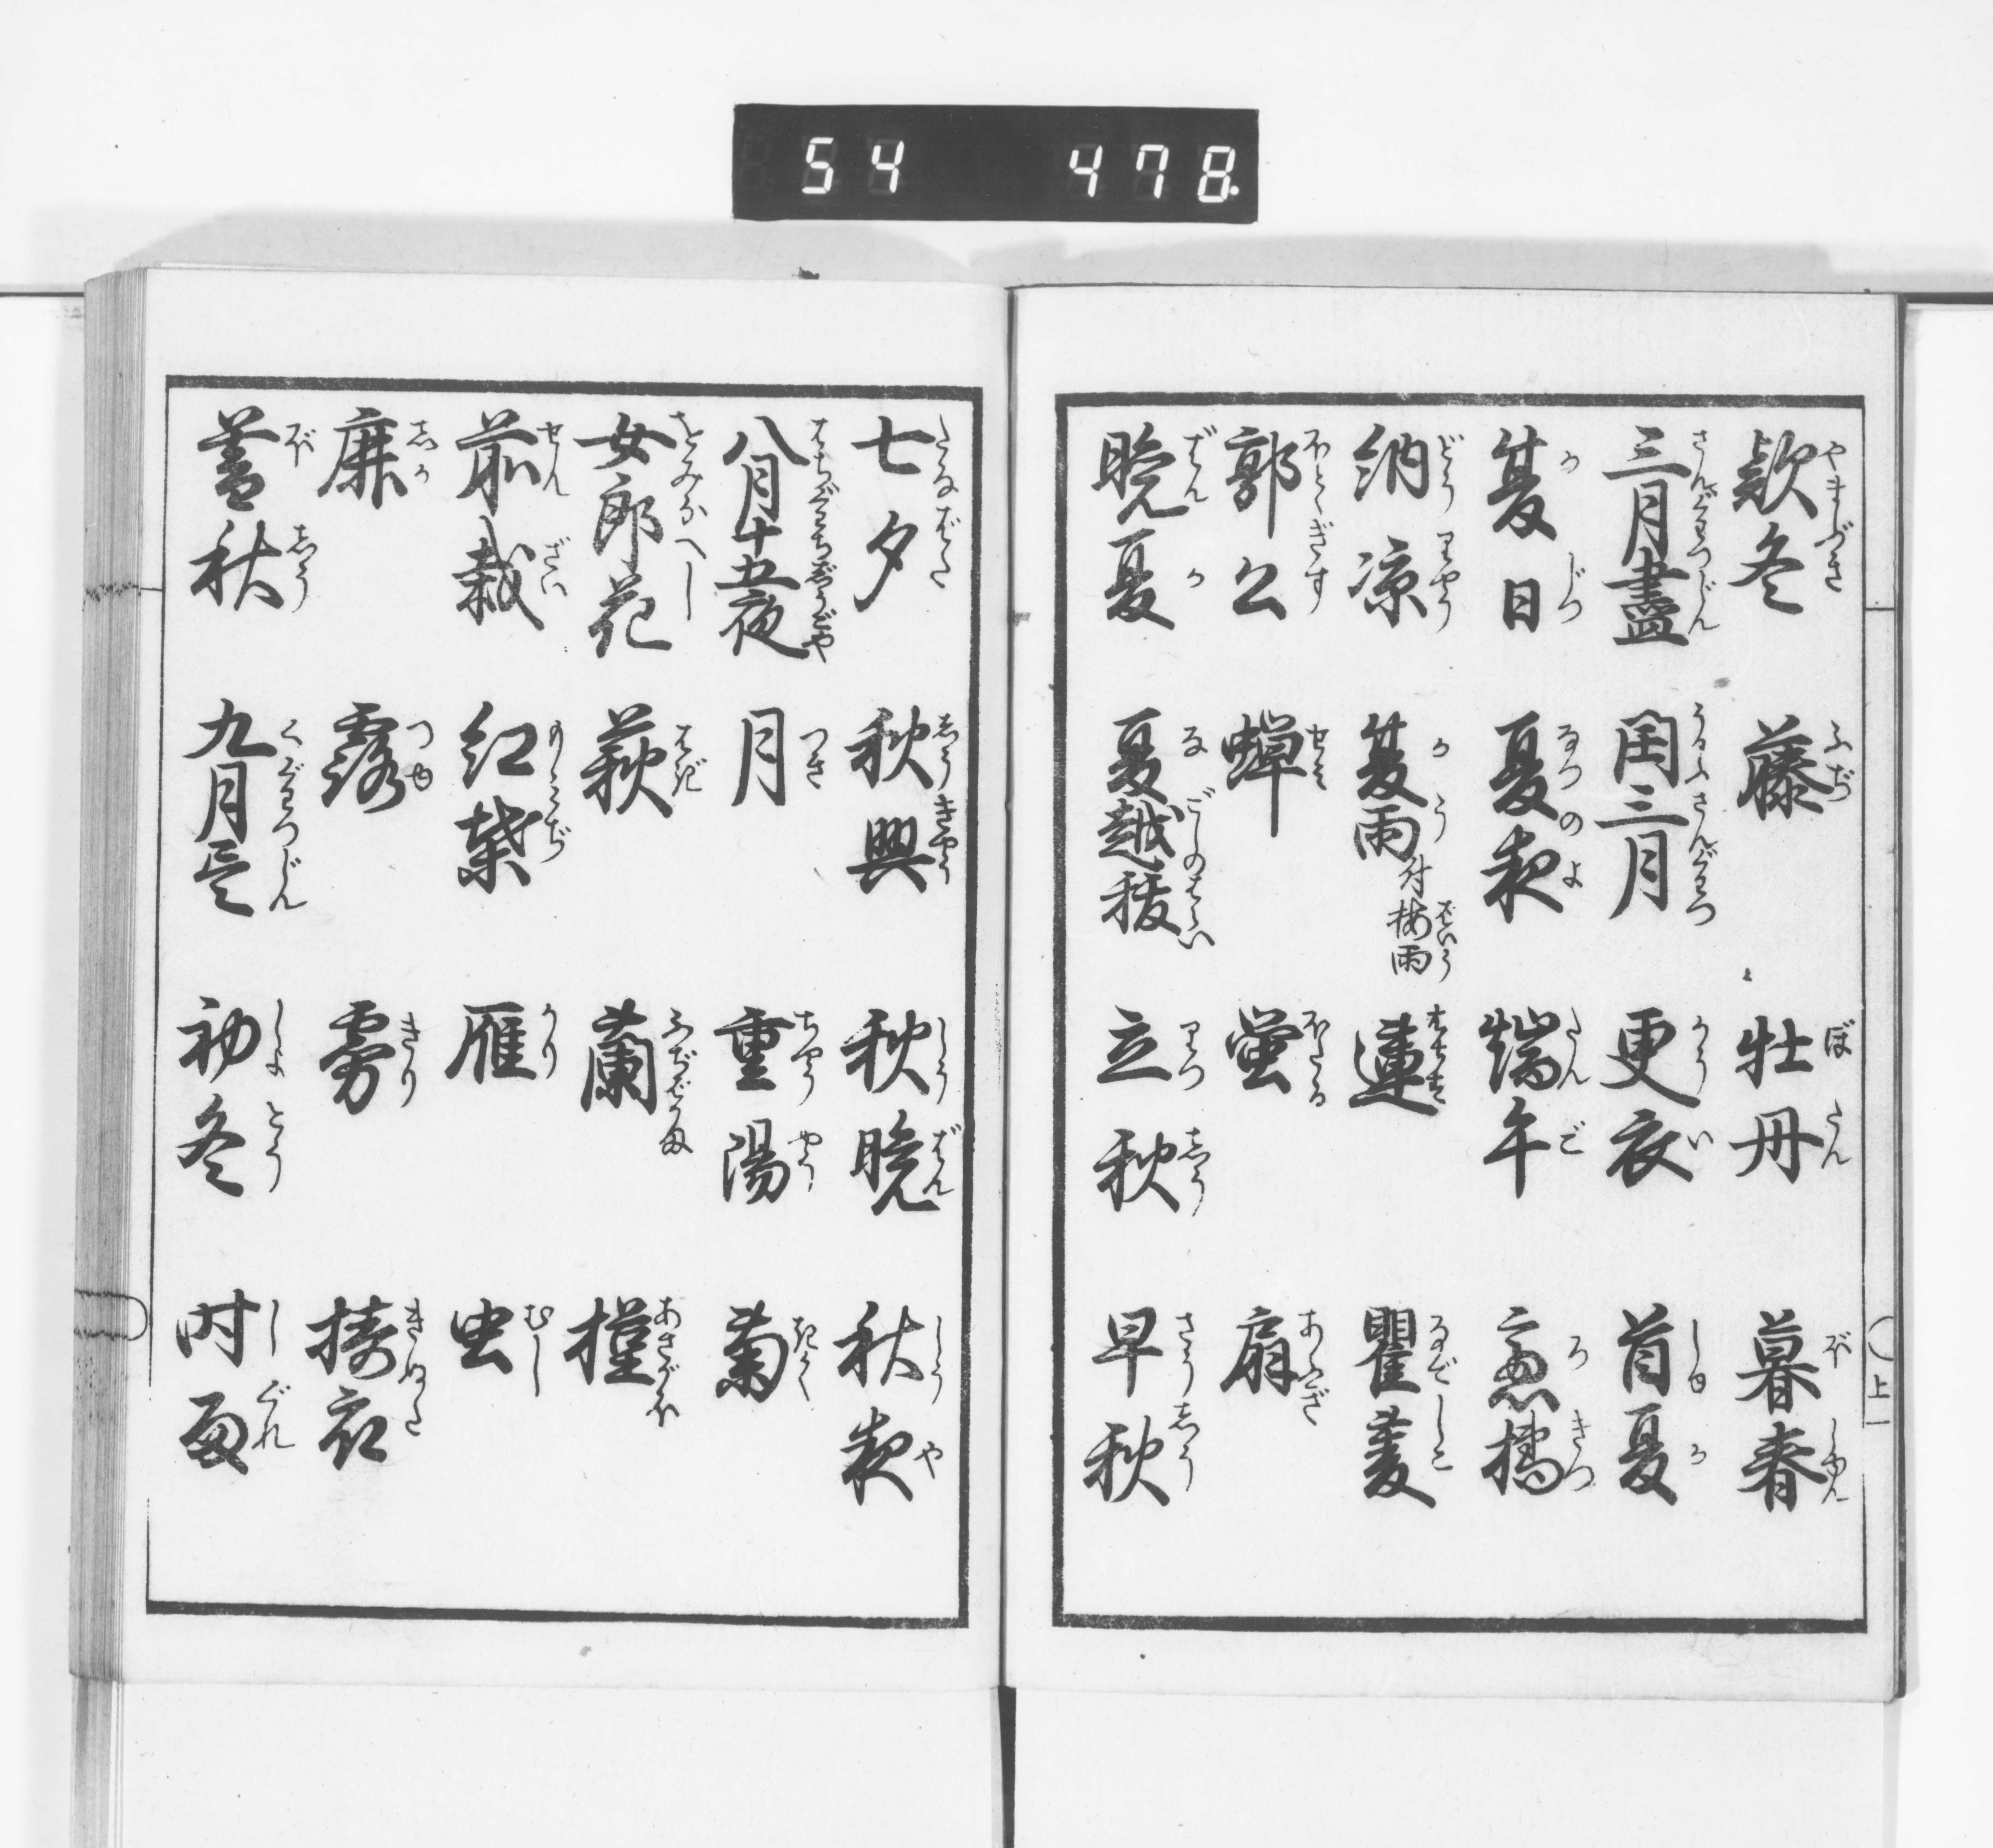 54 478.
款冬 藤 牡丹 暮春
三月盡 閏三月 更衣 首夏
夏日 夏夜 端午 盧橘
納凉 夏雨 付梅雨 蓮 瞿麦
郭公 蝉 螢 扇
晩夏 夏越祓 立秋 早秋
上一
七夕 秋興 秋晩 秋夜
八月十五夜 月 重陽 菊
女郎花 萩 蘭 槿
前栽 紅葉 雁 虫
鹿 露 霧 擣衣
暮秋 九月尽 初冬 時雨